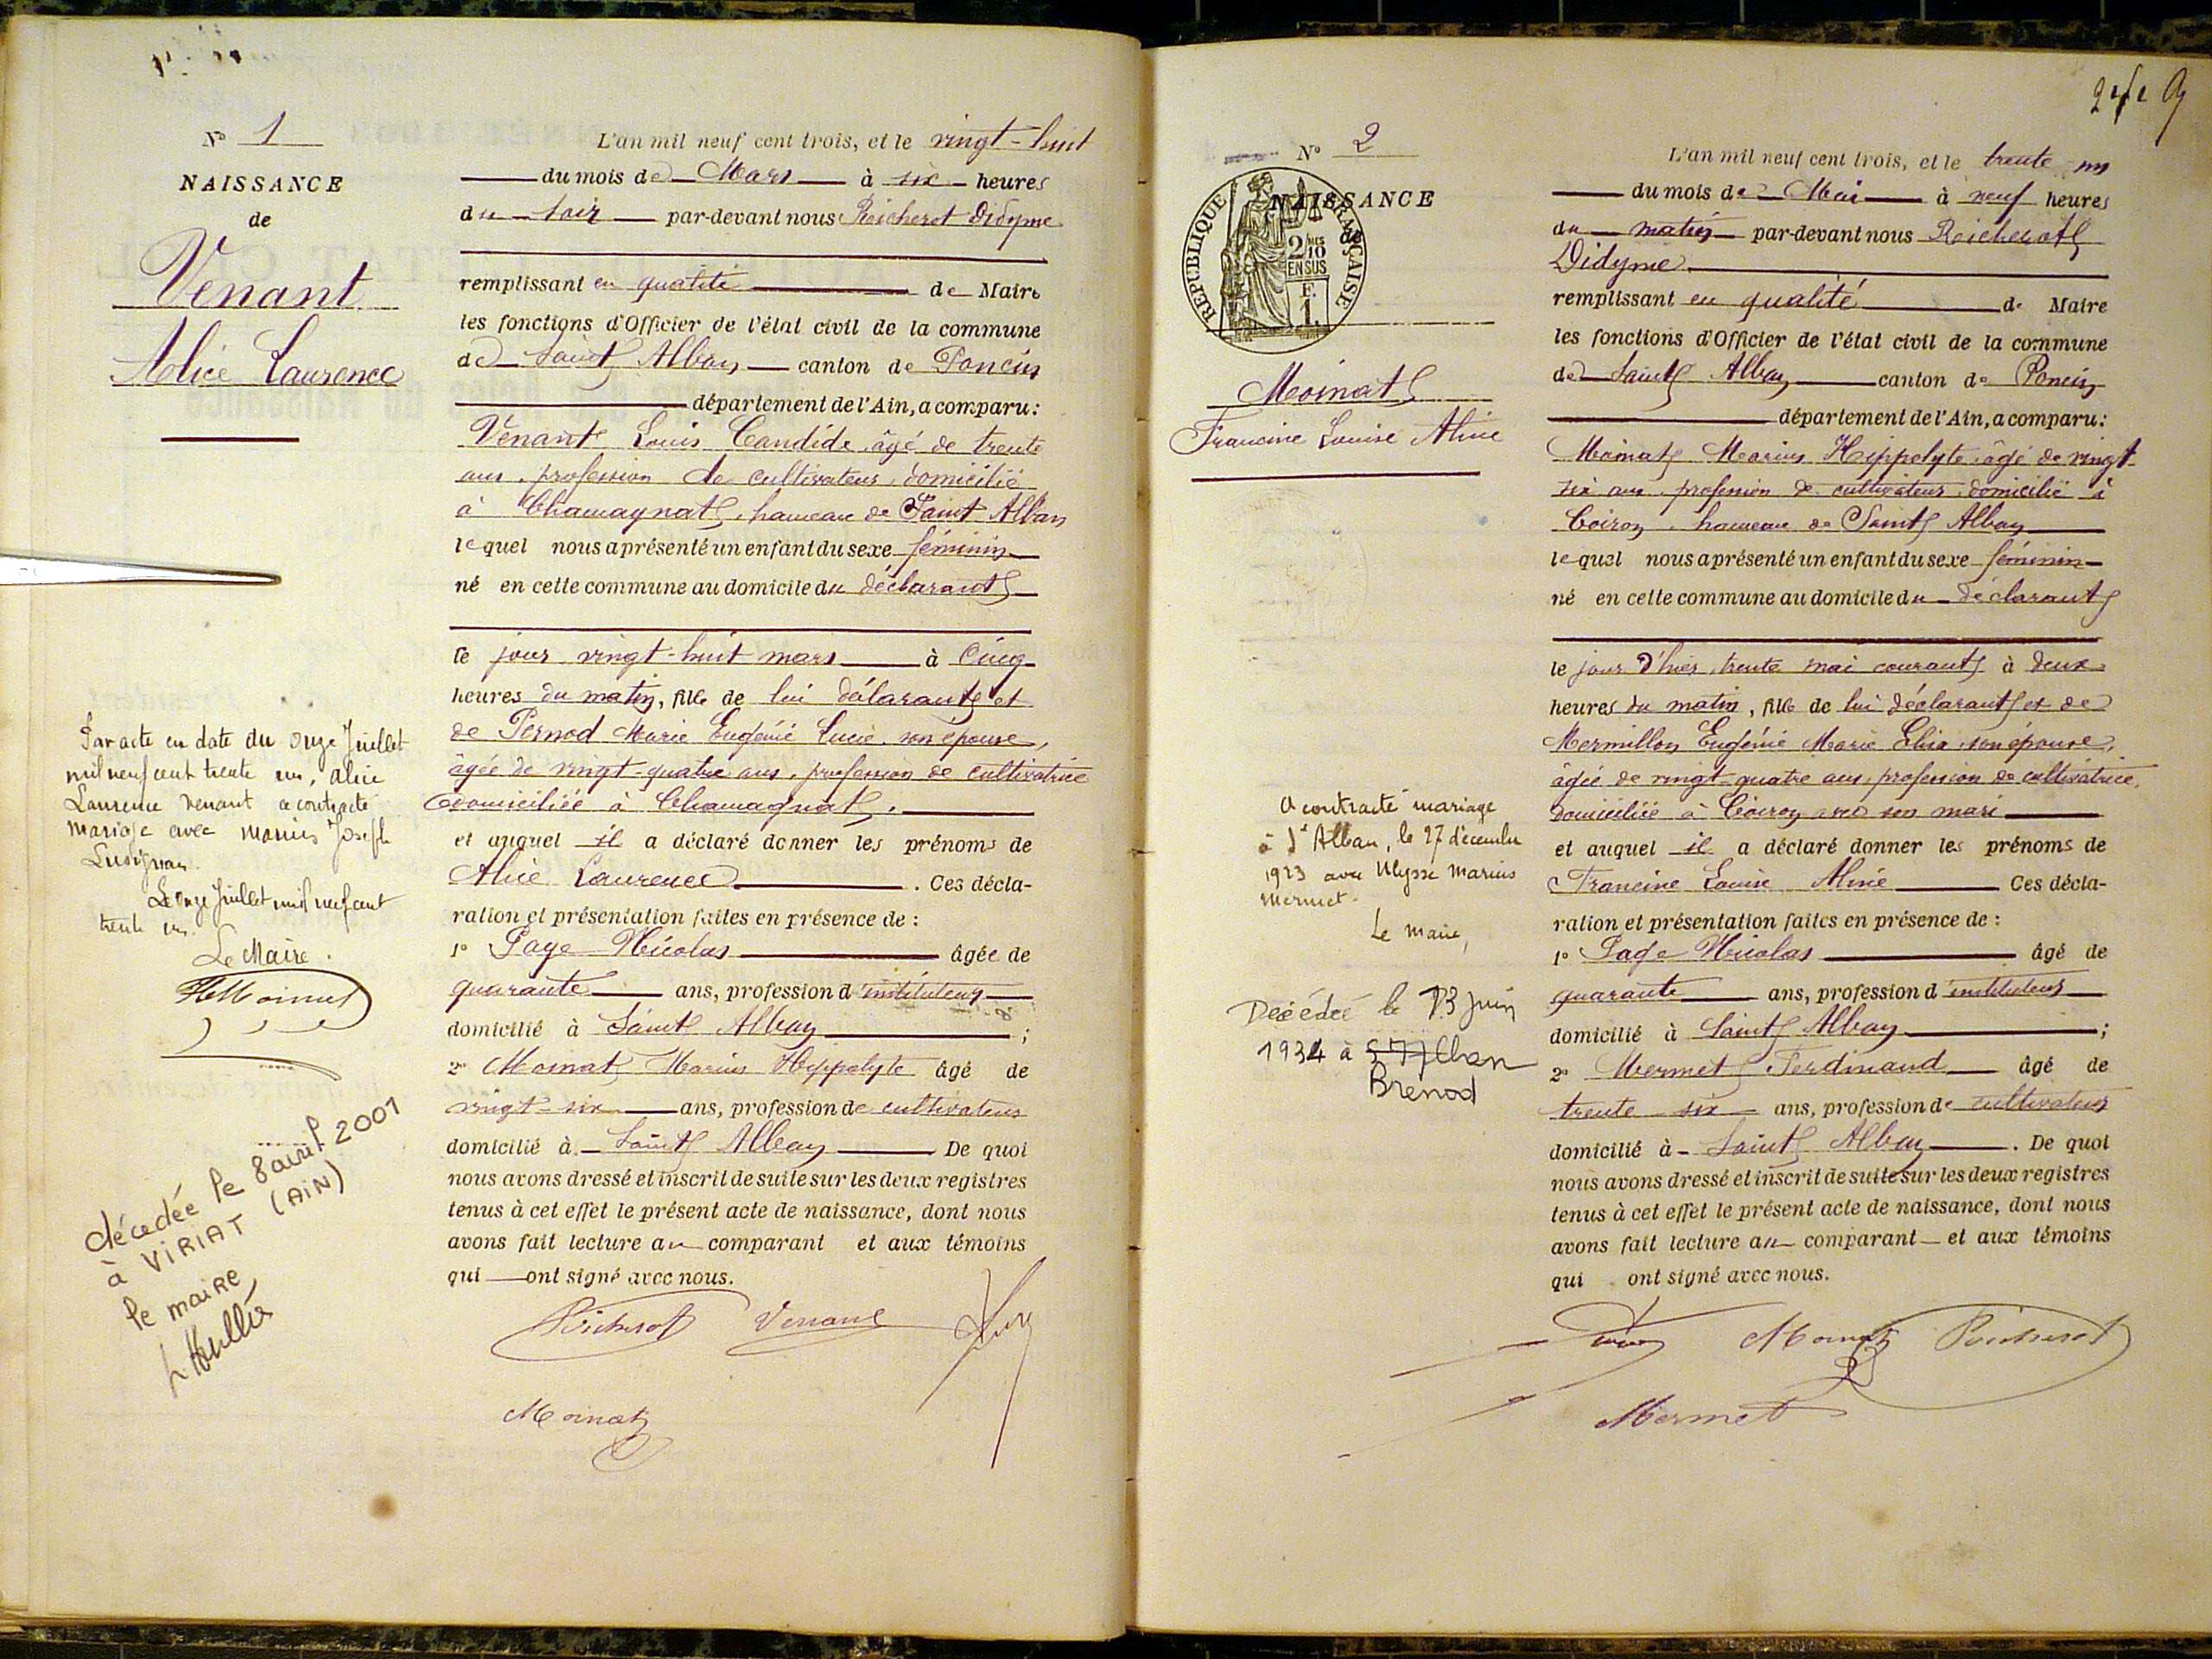 N° 1
NAISSANCE
de
Venant
Alice Laurence
L'an mil neuf cent trois, et le vingt-huit
du mois de Mars à six heures
du soir par-devant nous Reicherot Didyme
remplissant en qualité de Maire
les fonctions d'Officier de l'état civil de la commune
de Saint Alban canton de Poncin
département de l'Ain, a comparu:
Venant Louis Candide âgé de trente
ans, profession de cultivateur, domicilié
à Chamagnat, hameau de Saint Alban
lequel nous a présenté un enfant du sexe féminin
né en cette commune au domicile du déclarant
le jour vingt-huit mars à cinq
heures du matin, fille de lui déclarant et
de Pernod Marie Eugénie Lucie, son épouse,
âgée de vingt-quatre ans, profession de cultivatrice
domiciliée à Chamagnat.
et auquel il a déclaré donner les prénoms de
Alice Laurence. Ces décla-
ration et présentation faites en présence de :
1° Page Nicolas âgée de
quarante ans, profession d'instituteur
domicilié à Saint Alban ;
2° Moinat Marius Hippolyte âgé de
vingt-six ans, profession de cultivateur
domicilié à Saint Alban De quoi
nous avons dressé et inscrit de suite sur les deux registres
tenus à cet effet le présent acte de naissance, dont nous
avons fait lecture au comparant et aux témoins
qui ont signé avec nous.
Reicherot Venant
Moinat
Par acte en date du onze Juillet
mil neuf cent trente un, Alice
Laurence Venant a contracté
mariage avec Marius Joseph
Lusignan.
Le onze Juillet mil neuf cent
trente un.
Le Maire.
décedée le 8 avril 2001
à VIRIAT (AIN)
le maire,
2
N° 2
NAISSANCE
de
REPUBLIQUE FRANÇAISE
2/10
EN SUS
F.
1.
Moinat
Francine Louise Aline
L'an mil neuf cent trois, et le trente un
du mois de Mai à neuf heures
du matin par-devant nous Reicherot
Didyme
remplissant en qualité de Maire
les fonctions d'Officier de l'état civil de la commune
de Saint Alban canton de Poncin
département de l'Ain, a comparu:
Moinat Marius Hippolyte âgé de vingt-
six ans, profession de cultivateur, domicilié à
Coiron, hameau de Saint Alban
lequel nous a présenté un enfant du sexe féminin
né en cette commune au domicile du déclarant
le jour d'hier, trente mai courant à deux
heures du matin, fille de lui déclarant et de
Mermillon Eugénie Marie Elisa son épouse,
âgée de vingt-quatre ans, profession de cultivatrice,
domiciliée à Coiron avec son mari
et auquel il a déclaré donner les prénoms de
Francine Louise Aline Ces décla-
ration et présentation faites en présence de :
1° Page Nicolas âgé de
quarante ans, profession d'instituteur
domicilié à Saint Alban ;
2° Mermet Ferdinand âgé de
trente six ans, profession de cultivateur
domicilié à Saint Alban. De quoi
nous avons dressé et inscrit de suite sur les deux registres
tenus à cet effet le présent acte de naissance, dont nous
avons fait lecture au comparant et aux témoins
qui ont signé avec nous.
Moinat Reicherot
Mermet
A contracté mariage
à St Alban, le 27 décembre
1923 avec Ulysse Marius
Mermet.
Le Maire,
Décédée le 13 Juin
1934 à St Alban
Brenod